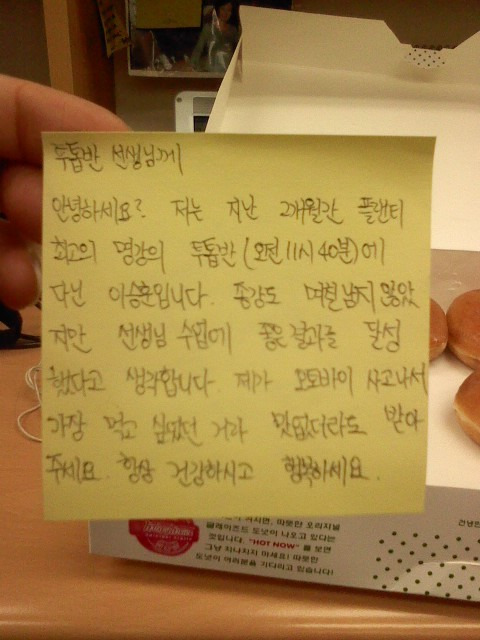 투톱반 선생님께
안녕하세요? 저는 지난 2개월간 플랜티
최고의 명강의 투톱반(오전 11시 40분)에
다닌 이승훈입니다. 종강도 며칠 남지 않았
지만 선생님 수업에 좋은 결과를 달성
했다고 생각합니다. 제가 오토바이 사고나서
가장 먹고 싶었던 거라 맛없더라도 받아
주세요. 항상 건강하시고 행복하세요.
켜지면, 따뜻한 오리지널
글레이즈드 도넛이 나오고 있다는
것입니다. "HOT NOW" 를 보면
그냥 지나치지 마세요! 따뜻한
도넛이 여러분을 기다리고 있습니다!